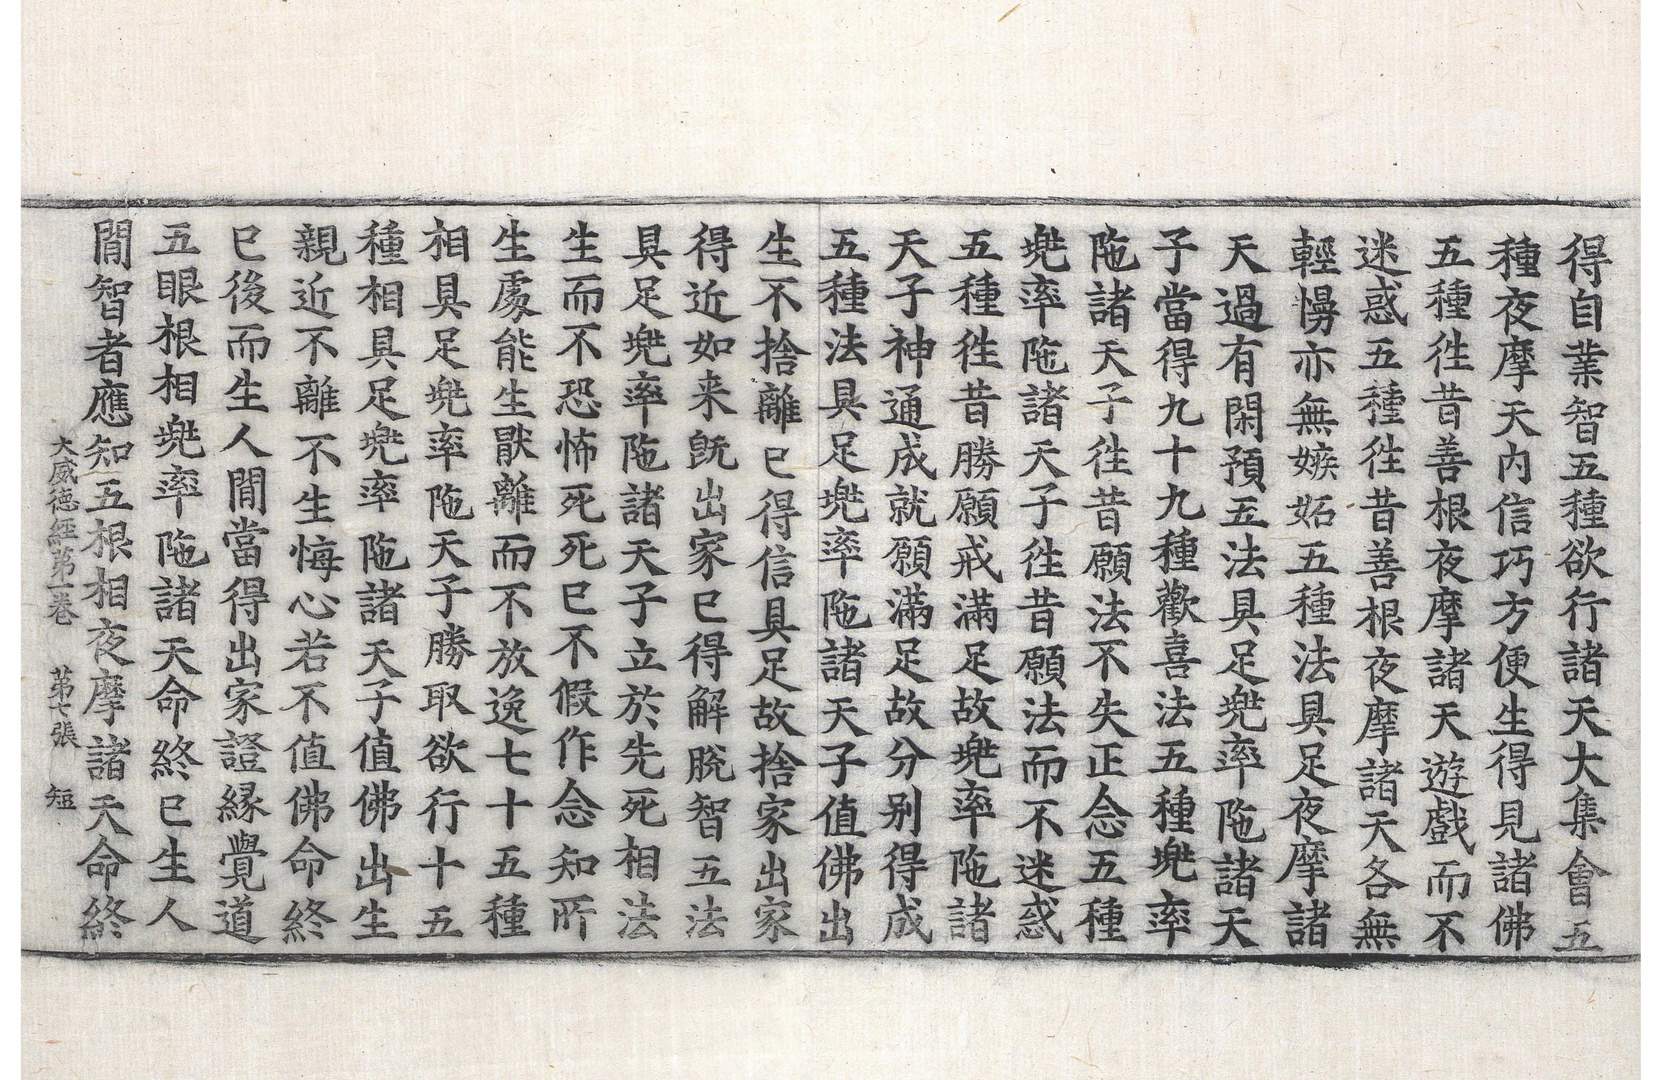 得自業智五種欲行諸天大集會五
種夜摩天內信巧方便生得見諸佛
五種徃昔善根夜摩諸天遊戲而不
迷惑五種徃昔善根夜摩諸天各無
輕慢亦無嫉妬五種法具足夜摩諸
天過有閑預五法具足兠率陁諸天
子當得九十九種歡喜法五種兠率
陁諸天子徃昔願法不失正念五種
兠率陁諸天子徃昔願法而不迷惑
五種徃昔勝願戒滿足故兠率陁諸
天子神通成就願滿足故分別得成
五種法具足兠率陁諸天子值佛出
生不捨離已得信具足故捨家出家
得近如来旣出家已得解脫智五法
具足兠率陁諸天子立於先死相法
生而不恐怖死死已不假作念知所
生處能生猒離而不放逸七十五種
相具足兠率陁天子勝取欲行十五
種相具足兠率陁諸天子值佛出生
親近不離不生悔心若不值佛命終
已後而生人間當得出家證緣覺道
五眼根相兠率陁諸天命終已生人
間智者應知五根相夜摩諸天命終
大威德經第一卷 第七張 短